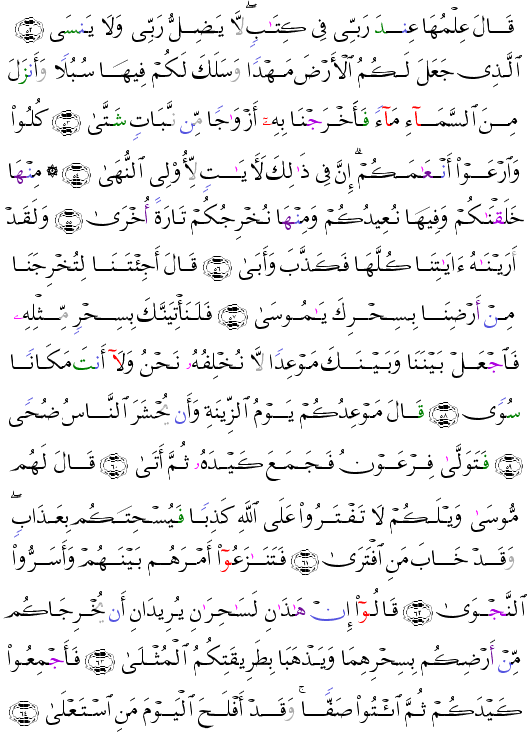 قَالَ عِلْمُهَا عِندَ رَبِّى فِى كِتَٰبٍۢ ۖ لَّا يَضِلُّ رَبِّى وَلَا يَنسَى ﴿٥٢﴾
ٱلَّذِى جَعَلَ لَكُمُ ٱلْأَرْضَ مَهْدًۭا وَسَلَكَ لَكُمْ فِيهَا سُبُلًۭا وَأَنزَلَ
مِنَ ٱلسَّمَآءِ مَآءًۭ فَأَخْرَجْنَا بِهِۦٓ أَزْوَٰجًۭا مِّن نَّبَاتٍۢ شَتَّىٰ ﴿٥٣﴾ كُلُوا۟
وَٱرْعَوْا۟ أَنْعَٰمَكُمْ ۗ إِنَّ فِى ذَٰلِكَ لَءَايَٰتٍۢ لِّأُو۟لِى ٱلنُّهَىٰ ﴿٥٤﴾ ۞ مِنْهَا
خَلَقْنَٰكُمْ وَفِيهَا نُعِيدُكُمْ وَمِنْهَا نُخْرِجُكُمْ تَارَةً أُخْرَىٰ ﴿٥٥﴾ وَلَقَدْ
أَرَيْنَٰهُ ءَايَٰتِنَا كُلَّهَا فَكَذَّبَ وَأَبَىٰ ﴿٥٦﴾ قَالَ أَجِئْتَنَا لِتُخْرِجَنَا
مِنْ أَرْضِنَا بِسِحْرِكَ يَٰمُوسَىٰ ﴿٥٧﴾ فَلَنَأْتِيَنَّكَ بِسِحْرٍۢ مِّثْلِهِۦ
فَٱجْعَلْ بَيْنَنَا وَبَيْنَكَ مَوْعِدًۭا لَّا نُخْلِفُهُۥ نَحْنُ وَلَآ أَنتَ مَكَانًۭا
سُوًۭى ﴿٥٨﴾ قَالَ مَوْعِدُكُمْ يَوْمُ ٱلزِّينَةِ وَأَن يُحْشَرَ ٱلنَّاسُ ضُحًۭى
﴿٥٩﴾ فَتَوَلَّىٰ فِرْعَوْنُ فَجَمَعَ كَيْدَهُۥ ثُمَّ أَتَىٰ ﴿٦٠﴾ قَالَ لَهُم
مُّوسَىٰ وَيْلَكُمْ لَا تَفْتَرُوا۟ عَلَى ٱللَّهِ كَذِبًۭا فَيُسْحِتَكُم بِعَذَابٍۢ ۖ
وَقَدْ خَابَ مَنِ ٱفْتَرَىٰ ﴿٦١﴾ فَتَنَٰزَعُوٓا۟ أَمْرَهُم بَيْنَهُمْ وَأَسَرُّوا۟
ٱلنَّجْوَىٰ ﴿٦٢﴾ قَالُوٓا۟ إِنْ هَٰذَٰنِ لَسَٰحِرَٰنِ يُرِيدَانِ أَن يُخْرِجَاكُم
مِّنْ أَرْضِكُم بِسِحْرِهِمَا وَيَذْهَبَا بِطَرِيقَتِكُمُ ٱلْمُثْلَىٰ ﴿٦٣﴾ فَأَجْمِعُوا۟
كَيْدَكُمْ ثُمَّ ٱئْتُوا۟ صَفًّۭا ۚ وَقَدْ أَفْلَحَ ٱلْيَوْمَ مَنِ ٱسْتَعْلَىٰ ﴿٦٤﴾